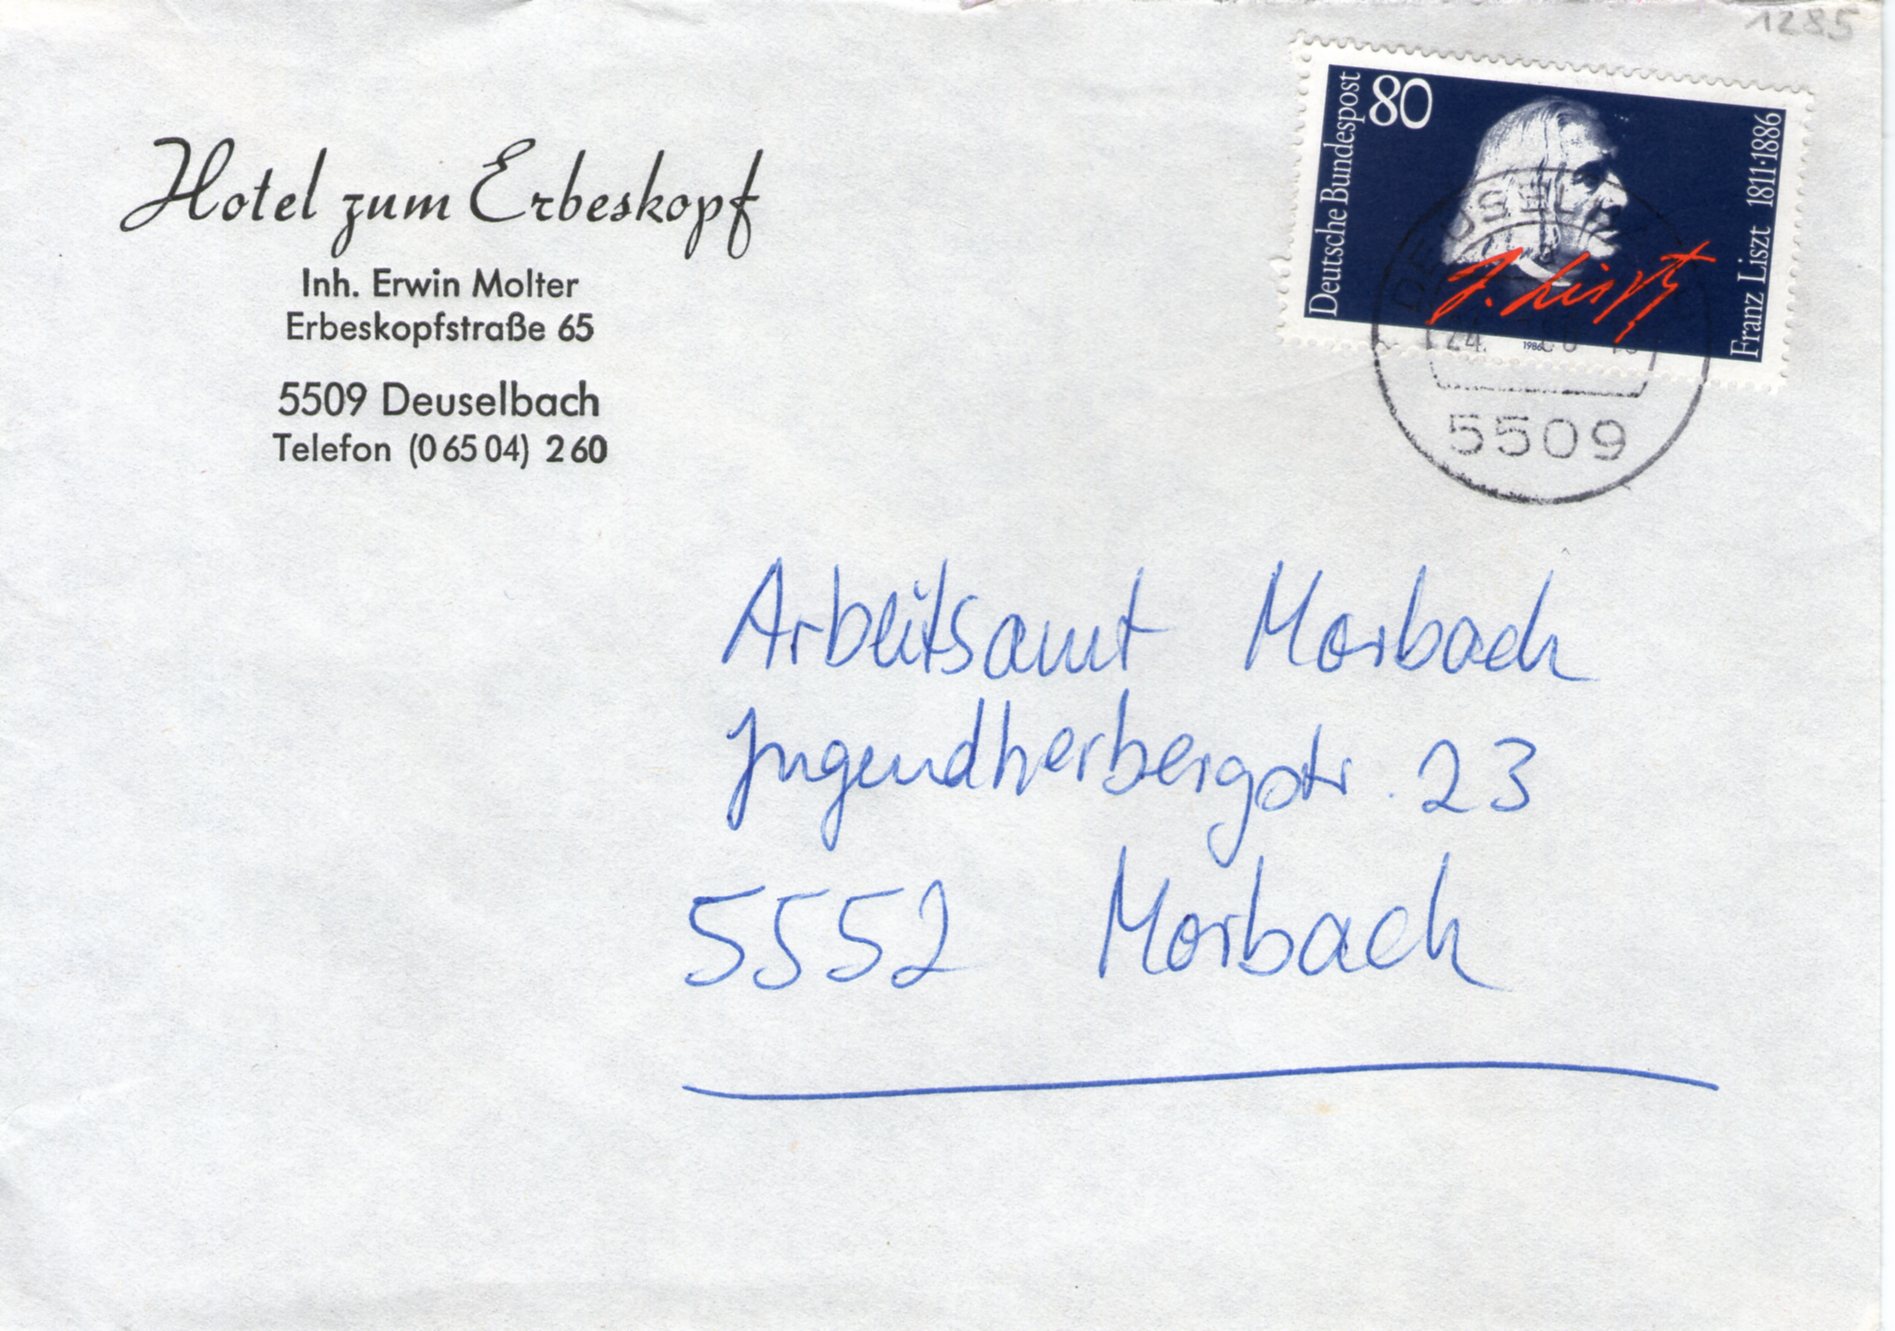 1285
Hotel zum Erbeskopf
Inh. Erwin Molter
Erbeskopfstraße 65
5509 Deuselbach
Telefon (0 65 04) 2 60
Deutsche Bundespost
80
Franz Liszt 1811·1886
F. Liszt
1986
24.
5509
Arbeitsamt Morbach
Jugendherbergstr. 23
5552 Morbach